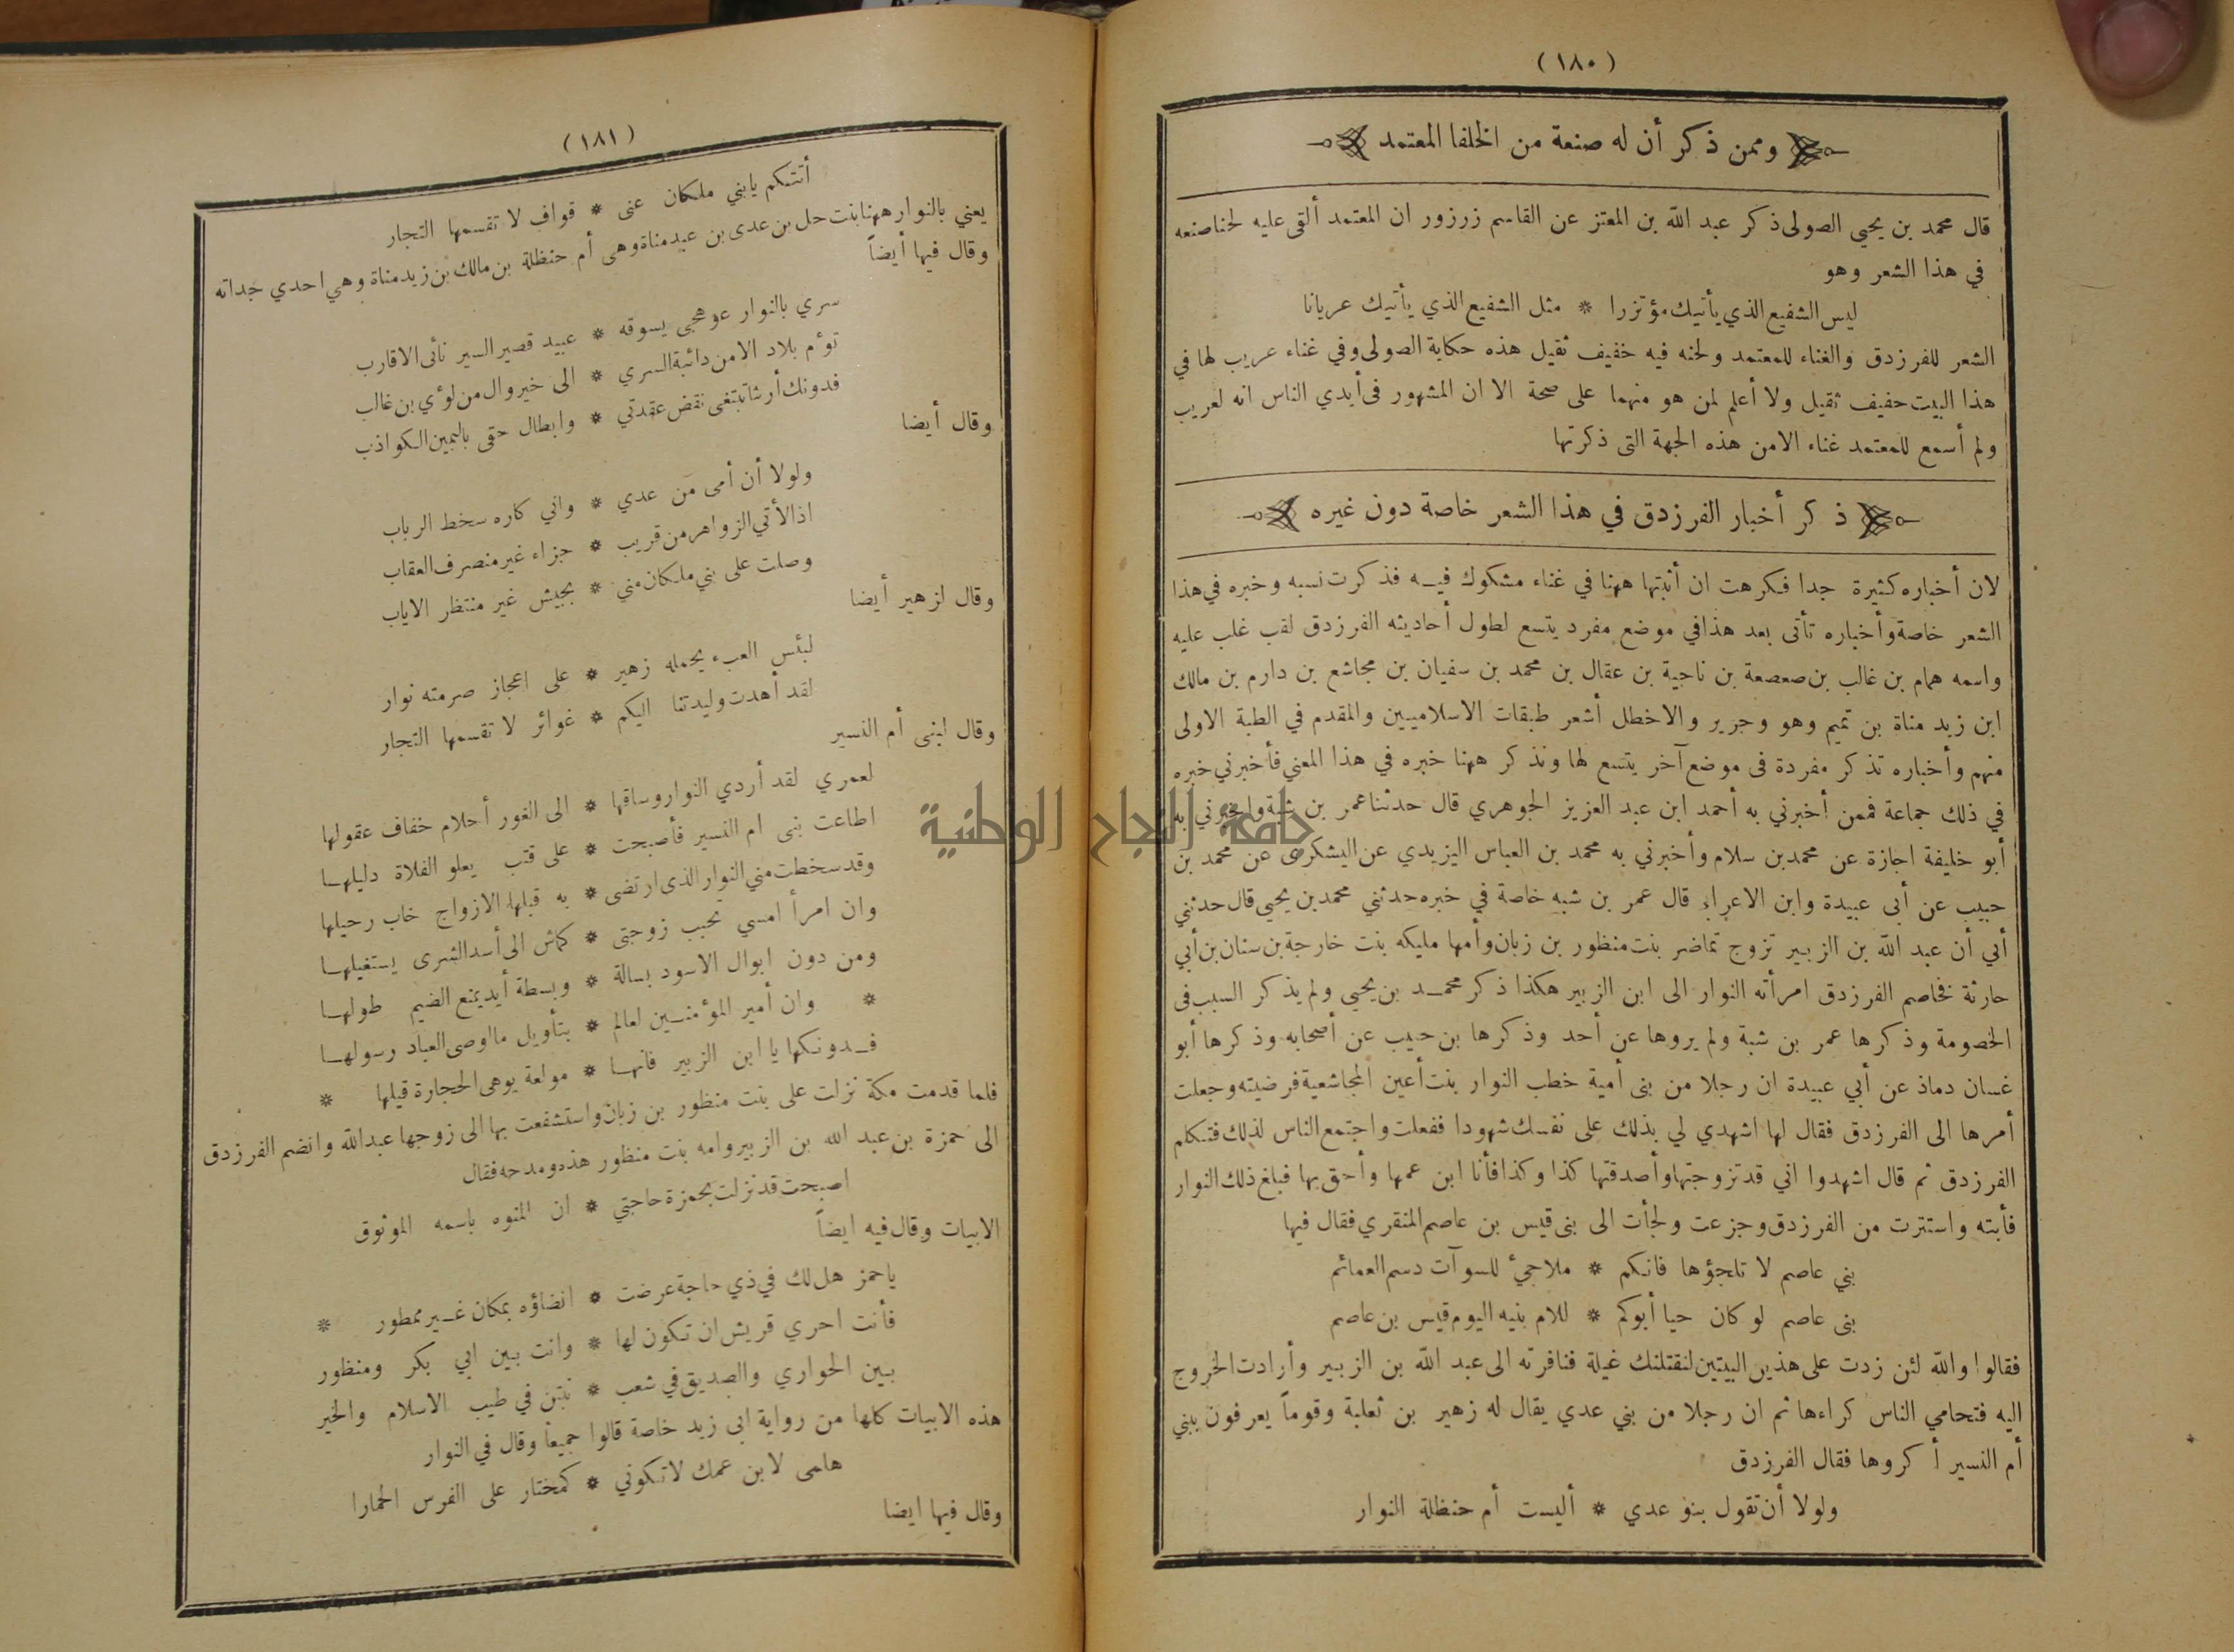 (١٨٠)
وممن ذكر أن له صنعة من الخلفا المعتمد
قال محمد بن يحيى الصولى ذكر عبد الله بن المعتز عن القاسم زرزور ان المعتمد ألقى عليه لحنا صنعه
في هذا الشعر وهو
ليس الشفيع الذي يأتيك مؤتزرا * مثل الشفيع الذي يأتيك عريانا
الشعر للفرزدق والغناء للمعتمد ولحنه فيه خفيف ثقيل هذه حكاية الصولى وفي غناء عريب لها في
هذا البيت خفيف ثقيل ولا أعلم لمن هو منهما على صحة الا ان المشهور فى أيدي الناس انه لعريب
ولم أسمع للمعتمد غناء الا من هذه الجهة التى ذكرتها
ذكر أخبار الفرزدق في هذا الشعر خاصة دون غيره
لان أخباره كثيرة جدا فكرهت ان أثبتها ههنا في غناء مشكوك فيه فذكرت نسبه وخبره في هذا
الشعر خاصة وأخباره تأتى بعد هذا في موضع مفرد يتسع لطول أحاديثه الفرزدق لقب غلب عليه
واسمه همام بن غالب بن صعصعة بن ناجية بن عقال بن محمد بن سفيان بن مجاشع بن دارم بن مالك
ابن زيد مناة بن تميم وهو وجرير والاخطل أشعر طبقات الاسلاميين والمقدم في الطبة الاولى
منهم وأخباره تذكر مفردة فى موضع آخر يتسع لها ونذكر ههنا خبره في هذا المعني فأخبرني خبره
في ذلك جماعة فممن أخبرني به أحمد ابن عبد العزيز الجوهري قال حدثنا عمر بن شبة وأخبرني به
أبو خليفة اجازة عن محمد بن سلام وأخبرني به محمد بن العباس اليزيدي عن اليشكرى عن محمد بن
حبيب عن أبى عبيدة وابن الاعرابي قال عمر بن شبه خاصة في خبره حدثني محمد بن يحيى قال حدثني
أبي أن عبد الله بن الزبير تزوج تماضر بنت منظور بن زبان وأمها مليكه بنت خارجة بن سنان بن أبي
حارثة فخاصم الفرزدق امرأته النوار الى ابن الزبير هكذا ذكر محمد بن يحيى ولم يذكر السبب فى
الخصومة وذكرها عمر بن شبة ولم يروها عن أحد وذكرها بن حبيب عن أصحابه وذكرها أبو
غسان دماذ عن أبي عبيدة ان رجلا من بنى أمية خطب النوار بنت أعين المجاشعية فرضيته وجعلت
أمرها الى الفرزدق فقال لها اشهدي لي بذلك على نفسك شهودا ففعلت واجتمع الناس لذلك فتكلم
الفرزدق ثم قال اشهدوا اني قد تزوجتها وأصدقتها كذا وكذا فأنا ابن عمها وأحق بها فبلغ ذلك النوار
فأبته واستترت من الفرزدق وجزعت ولجأت الى بنى قيس بن عاصم المنقري فقال فيها
بني عاصم لا تلجؤها فانكم * ملاجئ للسوآت دسم العمائم
بنى عاصم لو كان حيا أبوكم * للام بنيه اليوم قيس بن عاصم
فقالوا والله لئن زدت على هذين البيتين لنقتلنك غيلة فنافرته الى عبد الله بن الزبير وأرادت الخروج
اليه فتحامي الناس كراءها ثم ان رجلا من بني عدي يقال له زهير بن ثعلبة وقوماً يعرفون ببني
أم النسير أكروها فقال الفرزدق
ولولا أن تقول بنو عدي * أليست أم حنظلة النوار
(١٨١)
أتتكم يابني ملكان عنى * قواف لا تقسمها التجار
يعني بالنوار ههنا بنت حل بن عدى بن عبد مناة وهى أم حنظلة بن مالك بن زيد مناة وهي احدي جداته
وقال فيها أيضاً
سري بالنوار عوهجى يسوقه * عبيد قصير السير نأئى الاقارب
تؤم بلاد الامن دائبة السري * الى خير وال من لؤي بن غالب
فدونك أرشا تبتغى نقض عقدتي * وابطال حقى باليمين الكواذب
وقال أيضا
ولولا أن أمى من عدي * واني كاره سخط الرباب
اذا لأتي الزواهر من قريب * جزاء غير منصرف العقاب
وصلت على بني ملكان مني * بجيش غير منتظر الاياب
وقال لزهير أيضا
لبئس العبء يحمله زهير * على اعجاز صرمته نوار
لقد أهدت وليدتنا اليكم * غوائر لا تقسمها التجار
وقال لبنى أم النسير
لعمري لقد أردي النوار وساقها * الى الغور أحلام خفاف عقولها
اطاعت بنى ام النسير فأصبحت * على قتب يعلو الفلاة دليلها
وقد سخطت مني النوار الذى ارتضى * به قبلها الازواج خاب رحيلها
وان امرأ امسي تحبب زوجتى * كماش الى أسد الشرى يستغيلها
ومن دون ابوال الاسود بسالة * وبسطة أيد يمنع الضيم طولها
* وان أمير المؤمنين لعالم * بتأويل ما اوصى العباد رسولها
فدونكها يا ابن الزبير فانها * مولعة يوهى الحجارة قيلها *
فلما قدمت مكة نزلت على بنت منظور بن زبان واستشفعت بها الى زوجها عبد الله وانضم الفرزدق
الى حمزة بن عبد الله بن الزبير وامه بنت منظور هذه ومدحه فقال
اصبحت قد نزلت بحمزة حاجتي * ان المنوه باسمه الموثوق
الابيات وقال فيه ايضاً
ياحمز هل لك في ذي حاجة عرضت * انضاؤه بمكان غير ممطور *
فأنت احري قريش ان تكون لها * وانت بين ابي بكر ومنظور
بين الحواري والصديق في شعب * نبتن في طيب الاسلام والخير
هذه الابيات كلها من رواية ابى زيد خاصة قالوا جميعا وقال في النوار
هلمى لابن عمك لاتكوني * كمختار على الفرس الحمارا
وقال فيها ايضا
جامعة النجاح الوطنية